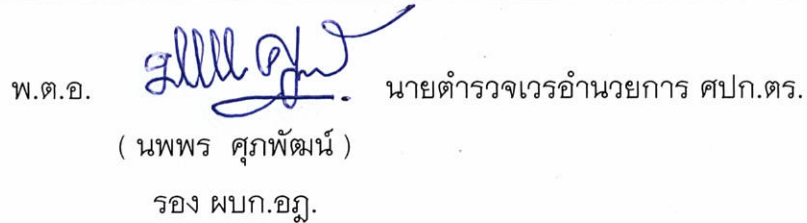 พ.ต.อ. นายตำรวจเวรอำนวยการ ศปก.ตร.
( นพพร ศุภพัฒน์ )
รอง ผบก.อฎ.